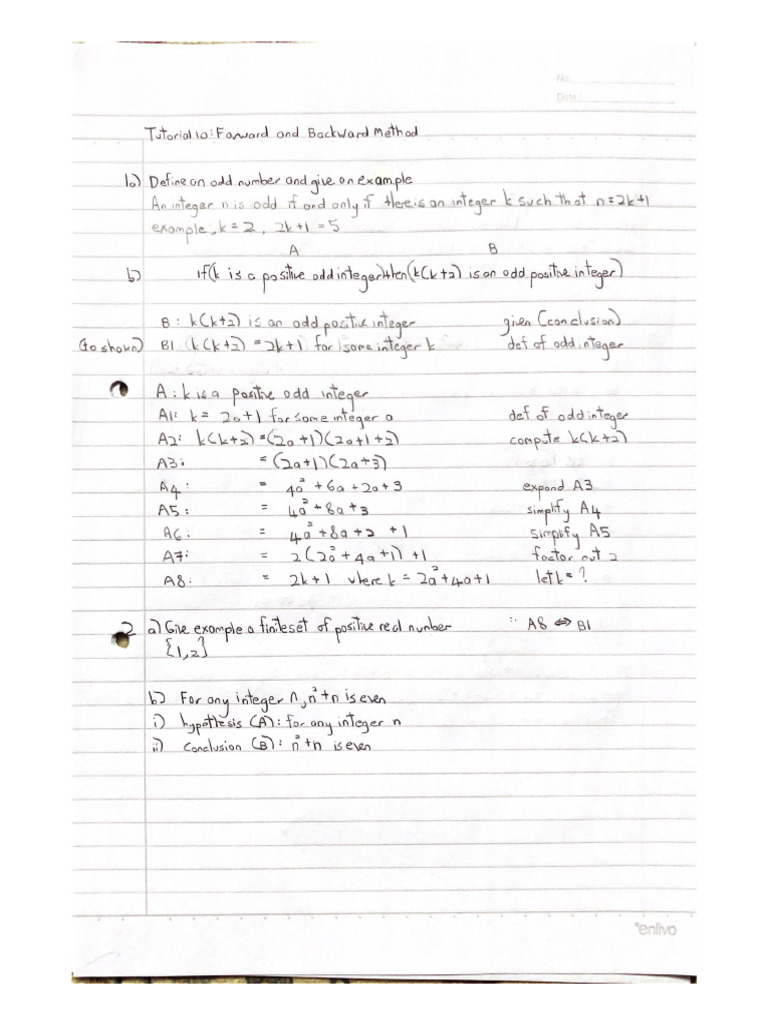 No.
Date:
Tutorial 10: Forward and Backward Method
1a) Define an odd number and give an example
An integer n is odd if and only if there is an integer k such that n=2k+1
example, k=2, 2k+1=5
A B
b) If(k is a positive odd integer)then(k(k+2) is an odd positive integer)
B: k(k+2) is an odd positive integer given (conclusion)
(to shown) B1 (k(k+2) = 2k+1 for some integer k def of odd integer
A: k is a positive odd integer
A1: k = 2a+1 for some integer a def of odd integer
A2: k(k+2) = (2a+1)(2a+1+2) compute k(k+2)
A3: = (2a+1)(2a+3)
A4: = 4a²+6a+2a+3 expand A3
A5: = 4a²+8a+3 simplify A4
A6: = 4a²+8a+2 +1 simplify A5
A7: = 2(2a²+4a+1)+1 factor out 2
A8: = 2k+1 where k = 2a²+4a+1 let k=?
2 a) Give example a finite set of positive real number ∵ A8 ⇔ B1
{1,2}
b) For any integer n, n²+n is even
i) hypothesis (A): for any integer n
ii) Conclusion (B): n²+n is even
enlivo